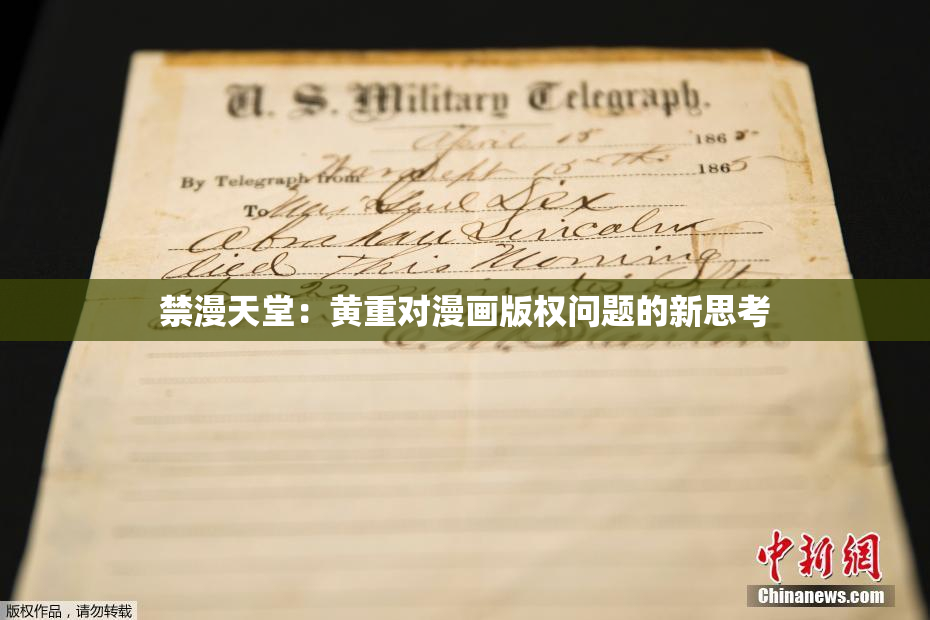 U. S. Military Telegraph.
April 15 1865
By Telegraph from War Dept 15th 1865
To Maj Genl Dix
Abraham Lincoln
died This Morning
22 minutes after
禁漫天堂：黄重对漫画版权问题的新思考
中新网
Chinanews.com
版权作品，请勿转载